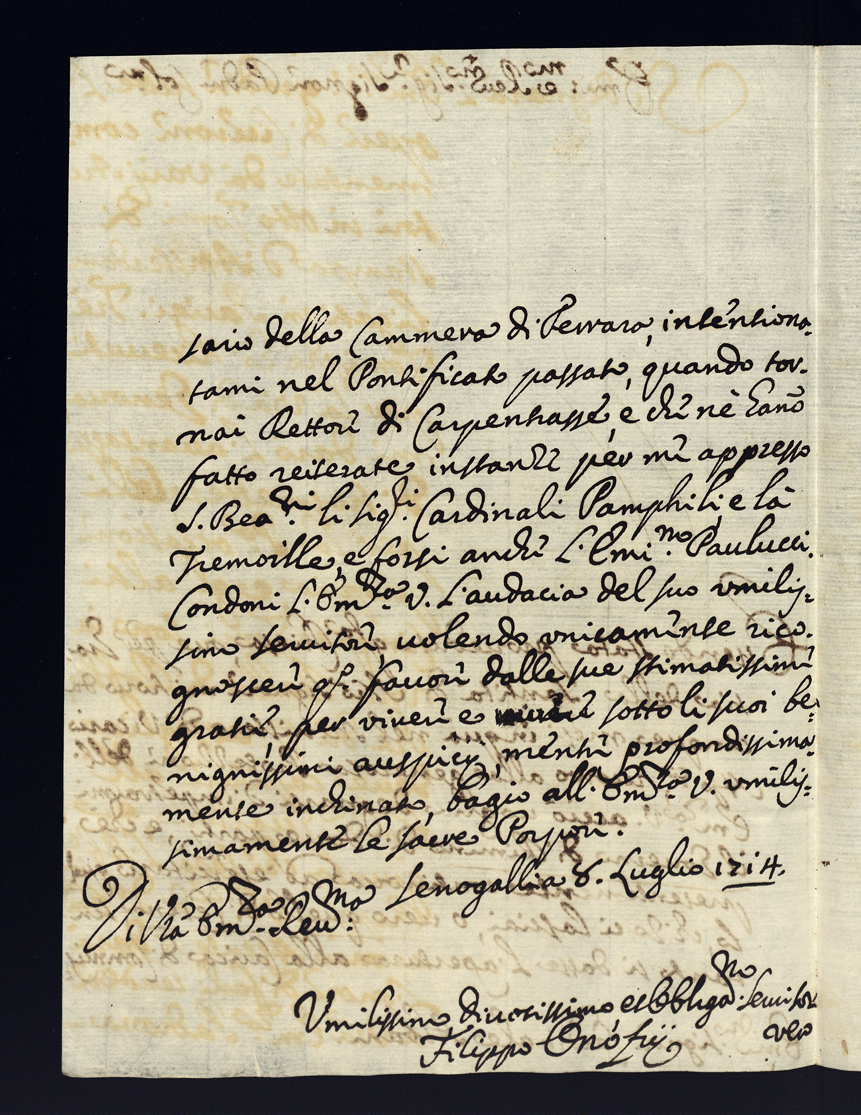 sario della Cammera di Ferrara, intentiona-
tami nel Pontificato passato, quando tor-
nai Rettore di Carpentrasse, e che nè hanõ
fatto reiterate instanze pér me appresso
S. Bea.ni li Sig.ri Cardinali Pamphili, e là
Tremoille, e forsi anche L'Emi.mo Paulucci.
Condoni L'Em.za V. L'audacia del suo vmilis-
simo servitore, uolendo vnicamente rico-
gnoscere q.sto favore dalle sue stimatissime
gratie, per vivere e sotto li suoi be-
nignissimi auspicij, mentre profondissima-
mente inchinato, bagio all'Em.za V. vmilis-
simamente le sacre Porpore.
Senogallia 8. Luglio 1714.
Di Vrã Em.za Reu.ma:
Vmilissimo diuotissimo et Obbliga.mo Seruitor
vero
Filippo Onófrij